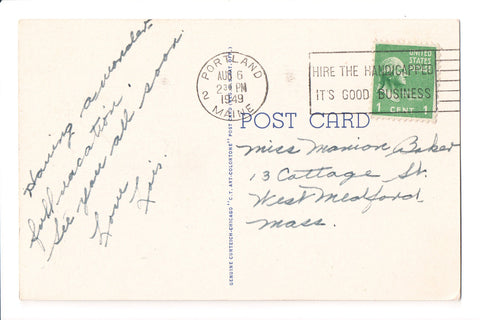 Having a wonder-
ful vacation.
See you all soon.
Love
Lois.
PORTLAND
AUG 6
2 PM
1949
2 MAINE
HIRE THE HANDICAPPED
IT'S GOOD BUSINESS
UNITED STATES
1 CENT 1
POST CARD
Miss Marion Baker
13 Cottage St.
West Medford,
Mass.
GENUINE CURTEICH-CHICAGO "C.T. ART-COLORTONE" POST